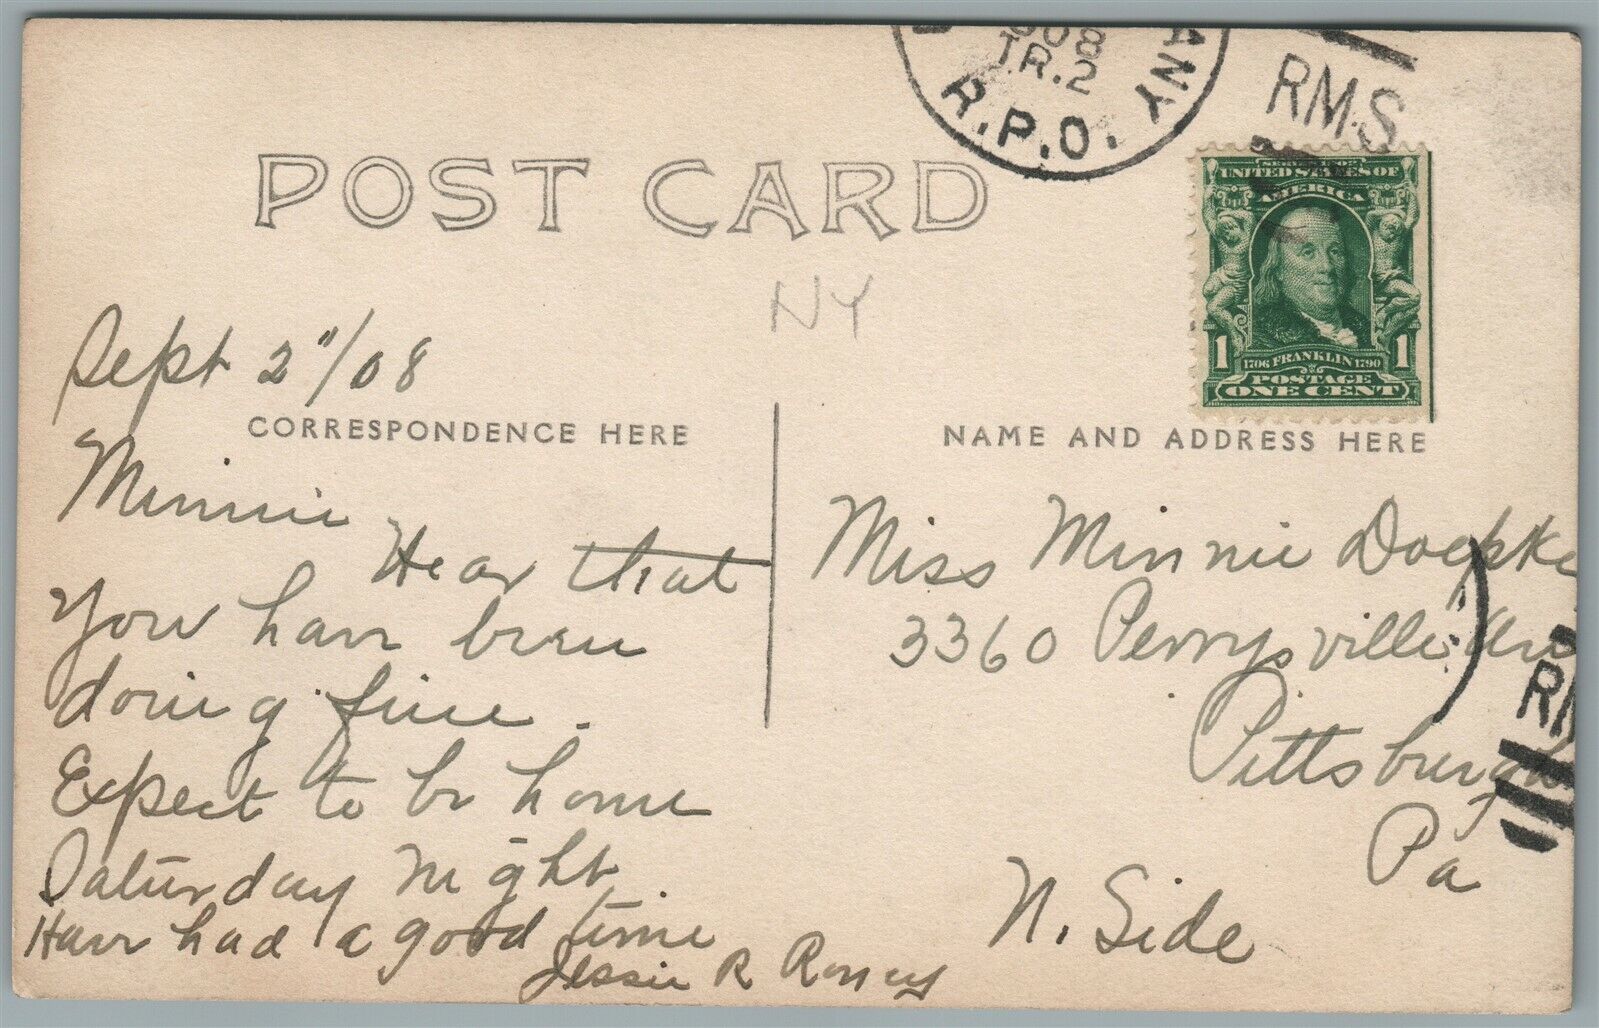 908
T.R.2
ANY
R.P.O.
RMS
POST CARD
SERIES OF 1902
UNITED STATES OF
AMERICA
1 1706 FRANKLIN 1790 1
POSTAGE
ONE CENT
NY
Sept 2"/08
CORRESPONDENCE HERE
NAME AND ADDRESS HERE
Minnie
Hear that
you have been
doing fine.
Expect to be home
Saturday night
Have had a good time
Jessie R Roney
Miss Minnie Doepke
3360 Perrysville Ave
Pittsburgh
Pa
N. Side
RM